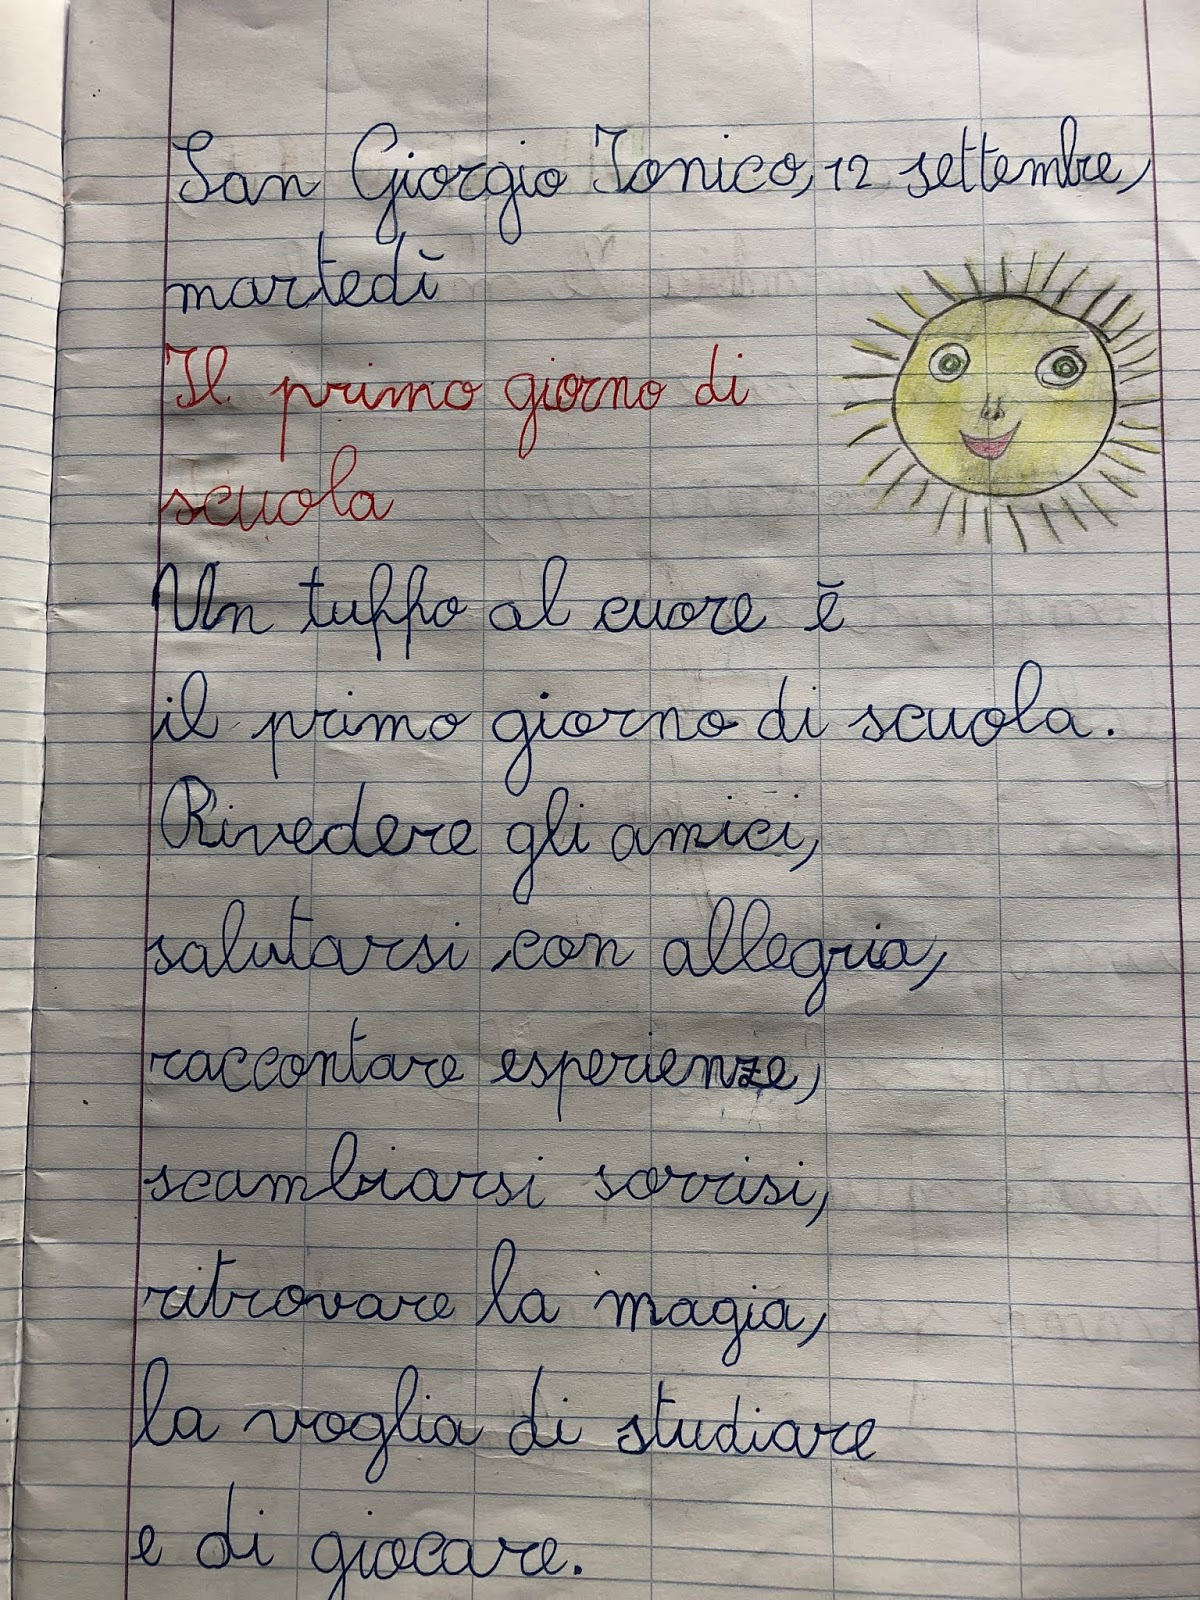 San Giorgio Ionico, 12 settembre,
martedì
Il primo giorno di
scuola
Un tuffo al cuore è
il primo giorno di scuola.
Rivedere gli amici,
salutarsi con allegria,
raccontare esperienze,
scambiarsi sorrisi,
ritrovare la magia,
la voglia di studiare
e di giocare.